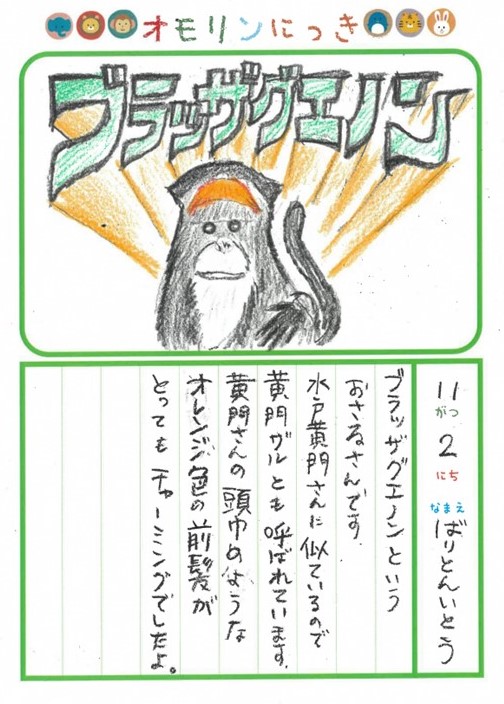 オモリンにっき
ブラッザグエノン
11がつ2にち なまえ ばりとんいとう
ブラッザグエノンという
おさるさんです。
水戸黄門さんに似ているので
黄門ザルとも呼ばれています。
黄門さんの頭巾のような
オレンジ色の前髪が
とってもチャーミングでしたよ。